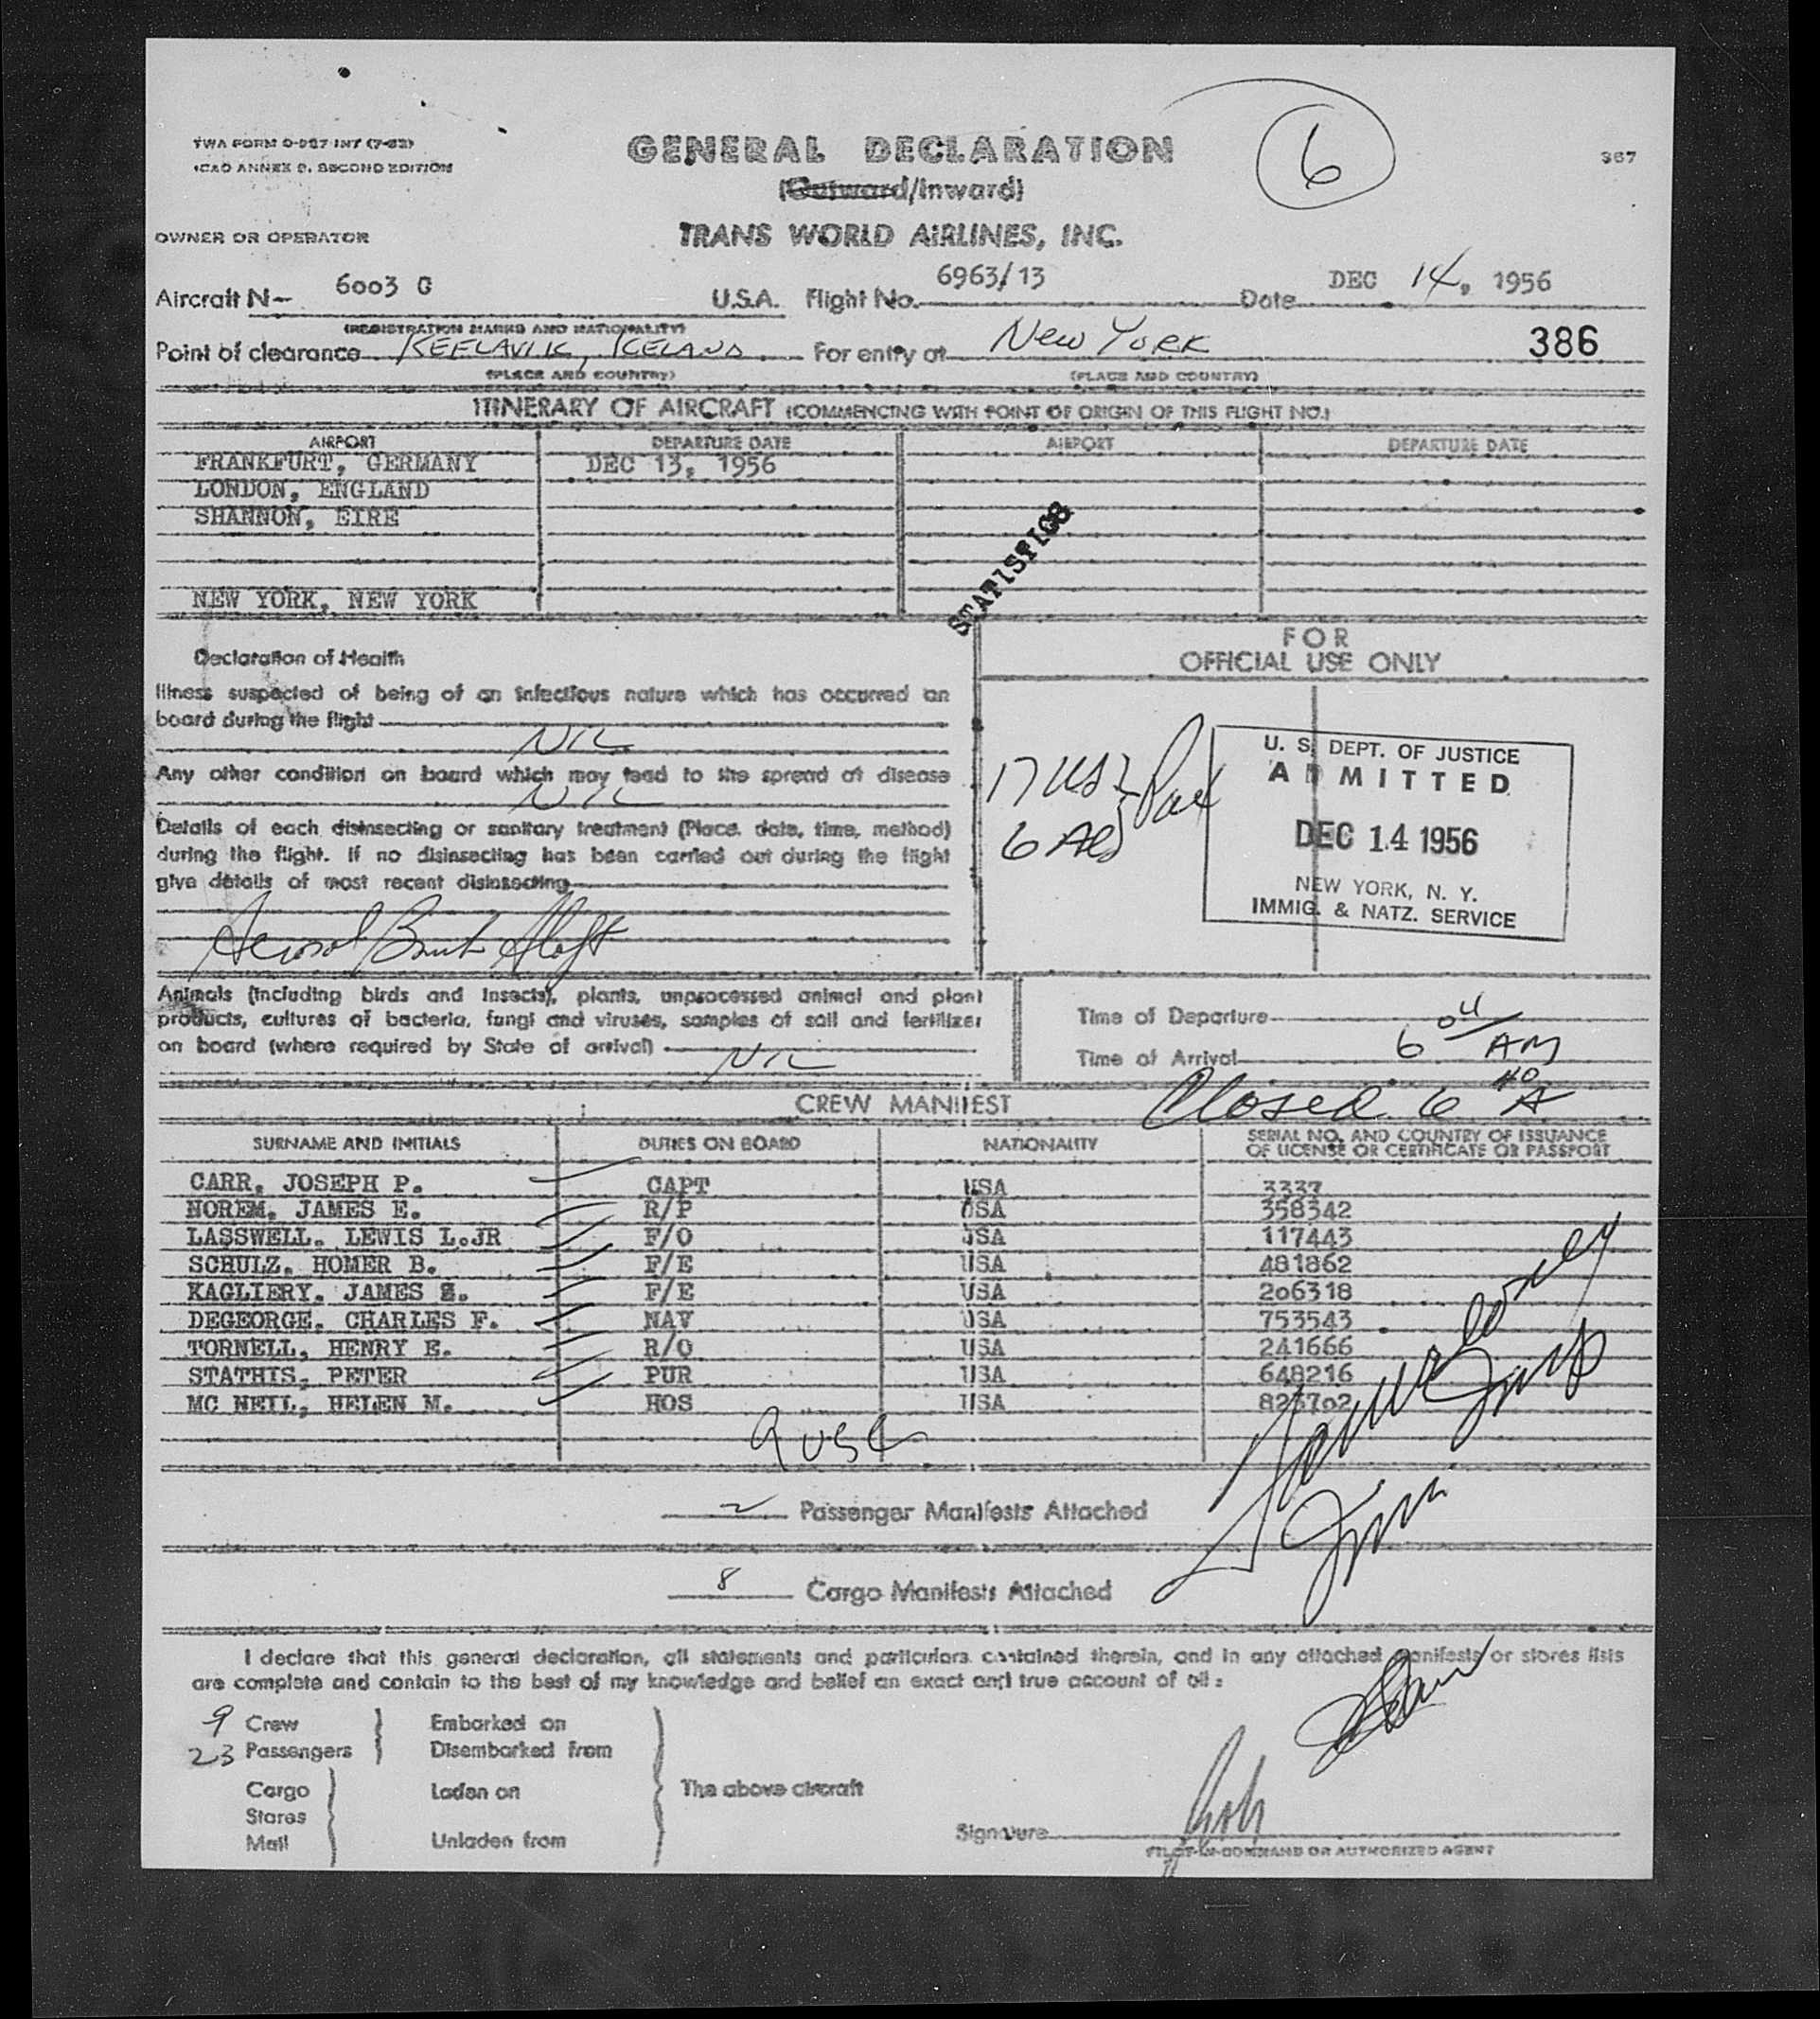 6
TWA FORM O-997 INT (7-52)
GENERAL DECLARATION
367
ICAO ANNEX 9, SECOND EDITION
(Outward/Inward)
OWNER OR OPERATOR
TRANS WORLD AIRLINES, INC.
Aircraft N- 6003 C U.S.A. Flight No. 6963/13 Date DEC 14, 1956
(REGISTRATION MARKS AND NATIONALITY)
Point of clearance KEFLAVIK, ICELAND For entry at New York 386
(PLACE AND COUNTRY) (PLACE AND COUNTRY)
ITINERARY OF AIRCRAFT (COMMENCING WITH POINT OF ORIGIN OF THIS FLIGHT NO.)
AIRPORT DEPARTURE DATE AIRPORT DEPARTURE DATE
FRANKFURT, GERMANY DEC 13, 1956
LONDON, ENGLAND
SHANNON, EIRE
STATISTICS
NEW YORK, NEW YORK
FOR
OFFICIAL USE ONLY
Declaration of Health
Illness suspected of being of an infectious nature which has occurred on
board during the flight
NIL
Any other condition on board which may lead to the spread of disease
NIL
Details of each disinsecting or sanitary treatment (Place, date, time, method)
during the flight. If no disinsecting has been carried out during the flight
give details of most recent disinsecting
Aerosol Bomb Aloft
17 US
6 Als
Pax
U. S. DEPT. OF JUSTICE
ADMITTED
DEC 14 1956
NEW YORK, N. Y.
IMMIG. & NATZ. SERVICE
Animals (including birds and insects), plants, unprocessed animal and plant
products, cultures of bacteria, fungi and viruses, samples of soil and fertilizer
on board (where required by State of arrival) NIL
Time of Departure
Time of Arrival 6 04 AM
Closed 6 40 A
CREW MANIFEST
SURNAME AND INITIALS DUTIES ON BOARD NATIONALITY SERIAL NO. AND COUNTRY OF ISSUANCE
OF LICENSE OR CERTIFICATE OR PASSPORT
CARR, JOSEPH P. CAPT USA 3337
NOREM, JAMES E. R/P USA 358342
LASSWELL, LEWIS L.JR F/O USA 117443
SCHULZ, HOMER B. F/E USA 481862
KAGLIERY, JAMES F/E USA 206318
DEGEORGE, CHARLES F. NAV USA 753543
TORNELL, HENRY E. R/O USA 241666
STATHIS, PETER PUR USA 648216
MC NEIL, HELEN M. HOS USA 823702
9 USC
2 Passenger Manifests Attached
8 Cargo Manifests Attached
I declare that this general declaration, all statements and particulars contained therein, and in any attached manifests or stores lists
are complete and contain to the best of my knowledge and belief an exact and true account of all:
9 Crew Embarked on
23 Passengers Disembarked from
Cargo Laden on The above aircraft
Stores
Mail Unladen from
Signature
PILOT-IN-COMMAND OR AUTHORIZED AGENT